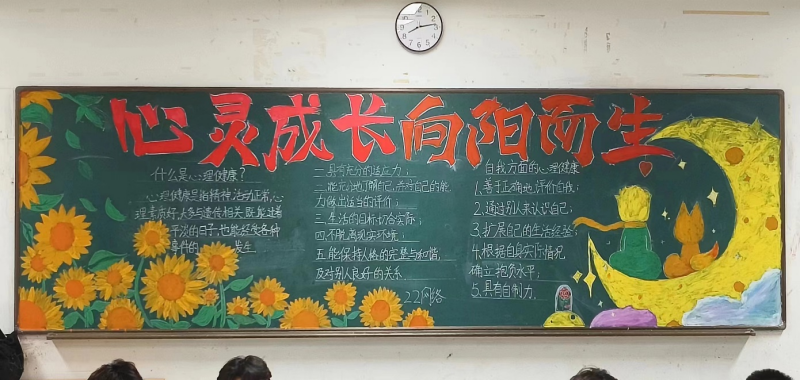 心灵成长向阳而生
什么是心理健康?
心理健康是指精神、活动正常,心
理素质好,大多与遗传相关,既能过着
平淡的日子,也能经受各种
事件的 发生
一.具有充分的适应力;
二.能充分地了解自己,并对自己的能
力做出适当的评价;
三.生活的目标切合实际;
四.不脱离现实环境;
五.能保持人格的完整与和谐
及对别人良好的关系
22网络
自我方面的心理健康
1.善于正确地评价自我;
2.通过别人来认识自己,
3.扩展自己的生活经验;
4.根据自身实际情况
确立抱负水平,
5.具有自制力.